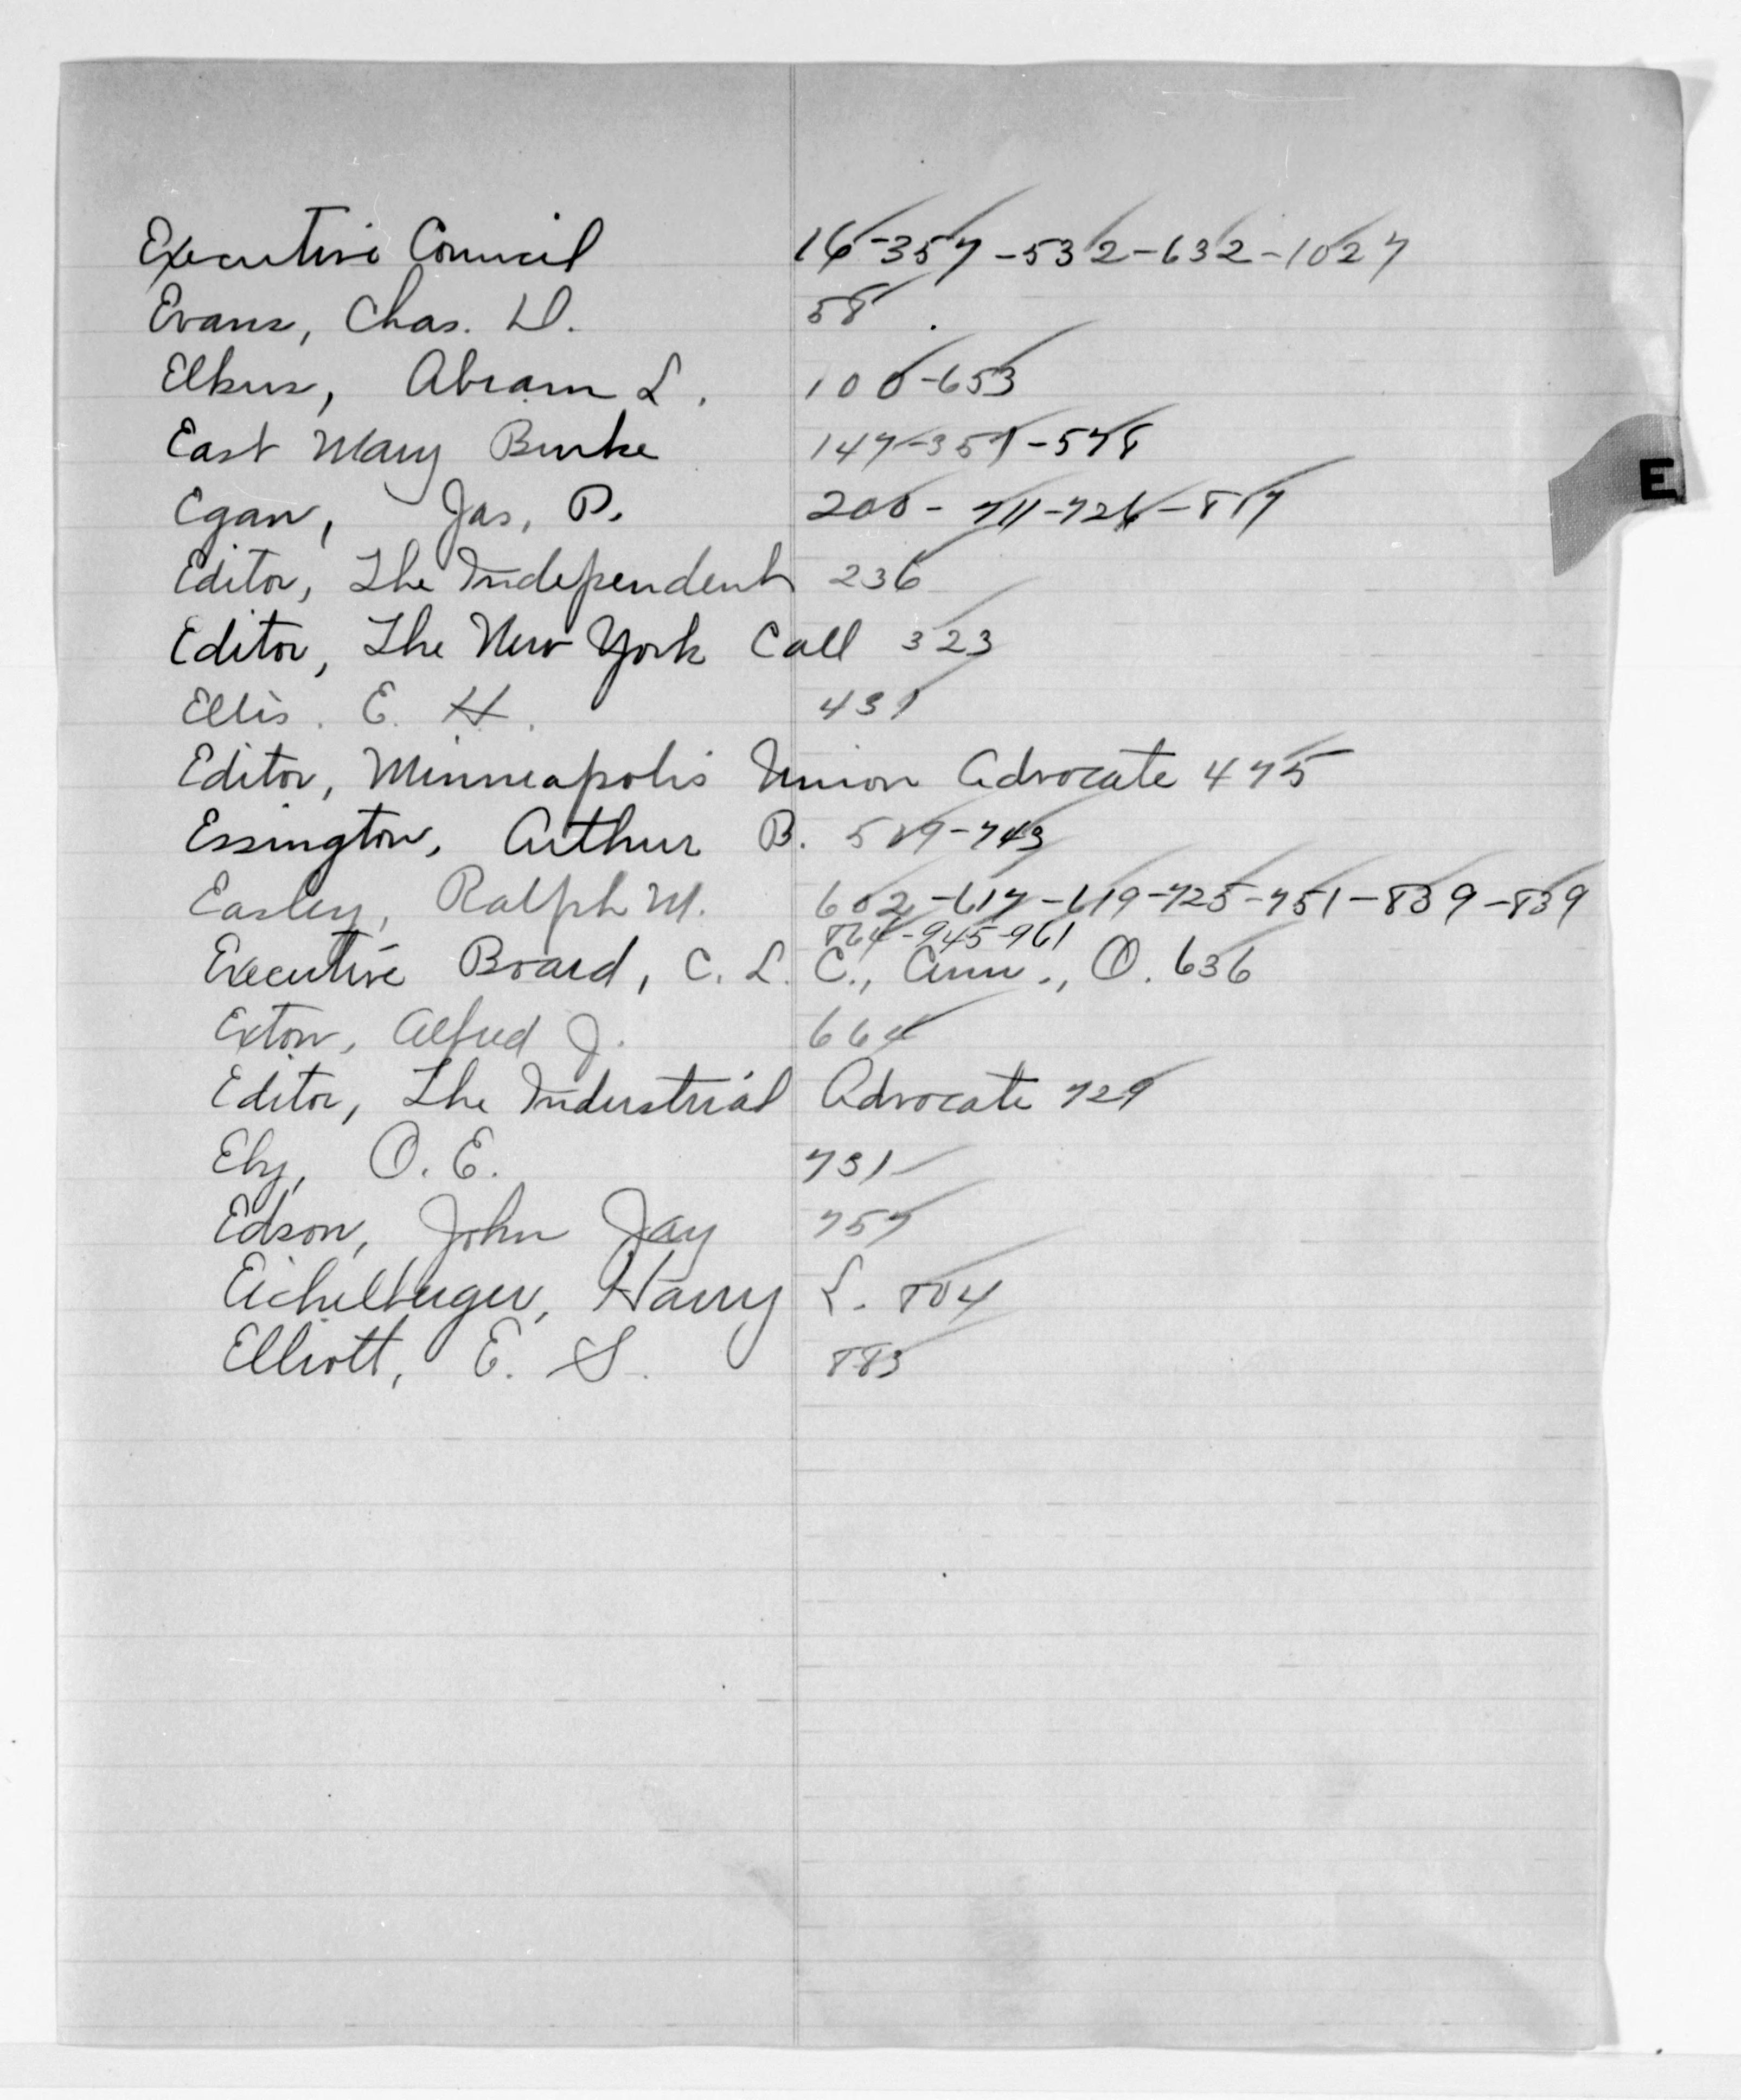 Executive Council 16-357-532-632-1027
Evans, Chas. D. 58
Elkus, Abram L. 100-653
East Mary Burke 147-357-578
Egan, Jas. P. 200-711-726-817
E
Editor, The Independent 236
Editor, The New York Call 323
Ellis. E. H. 431
Editor, Minneapolis Union Advocate 475
Essington, Arthur B. 519-743
Easley, Ralph M. 602-617-619-725-751-839-839
864-945-961
Executive Board, C. L. C., Cinn., O. 636
Exton, Alfred J. 664
Editor, The Industrial Advocate 729
Eby, O. E. 731
Edson, John Jay 757
Eichelberger, Harry L. 804
Elliott, E. S. 883